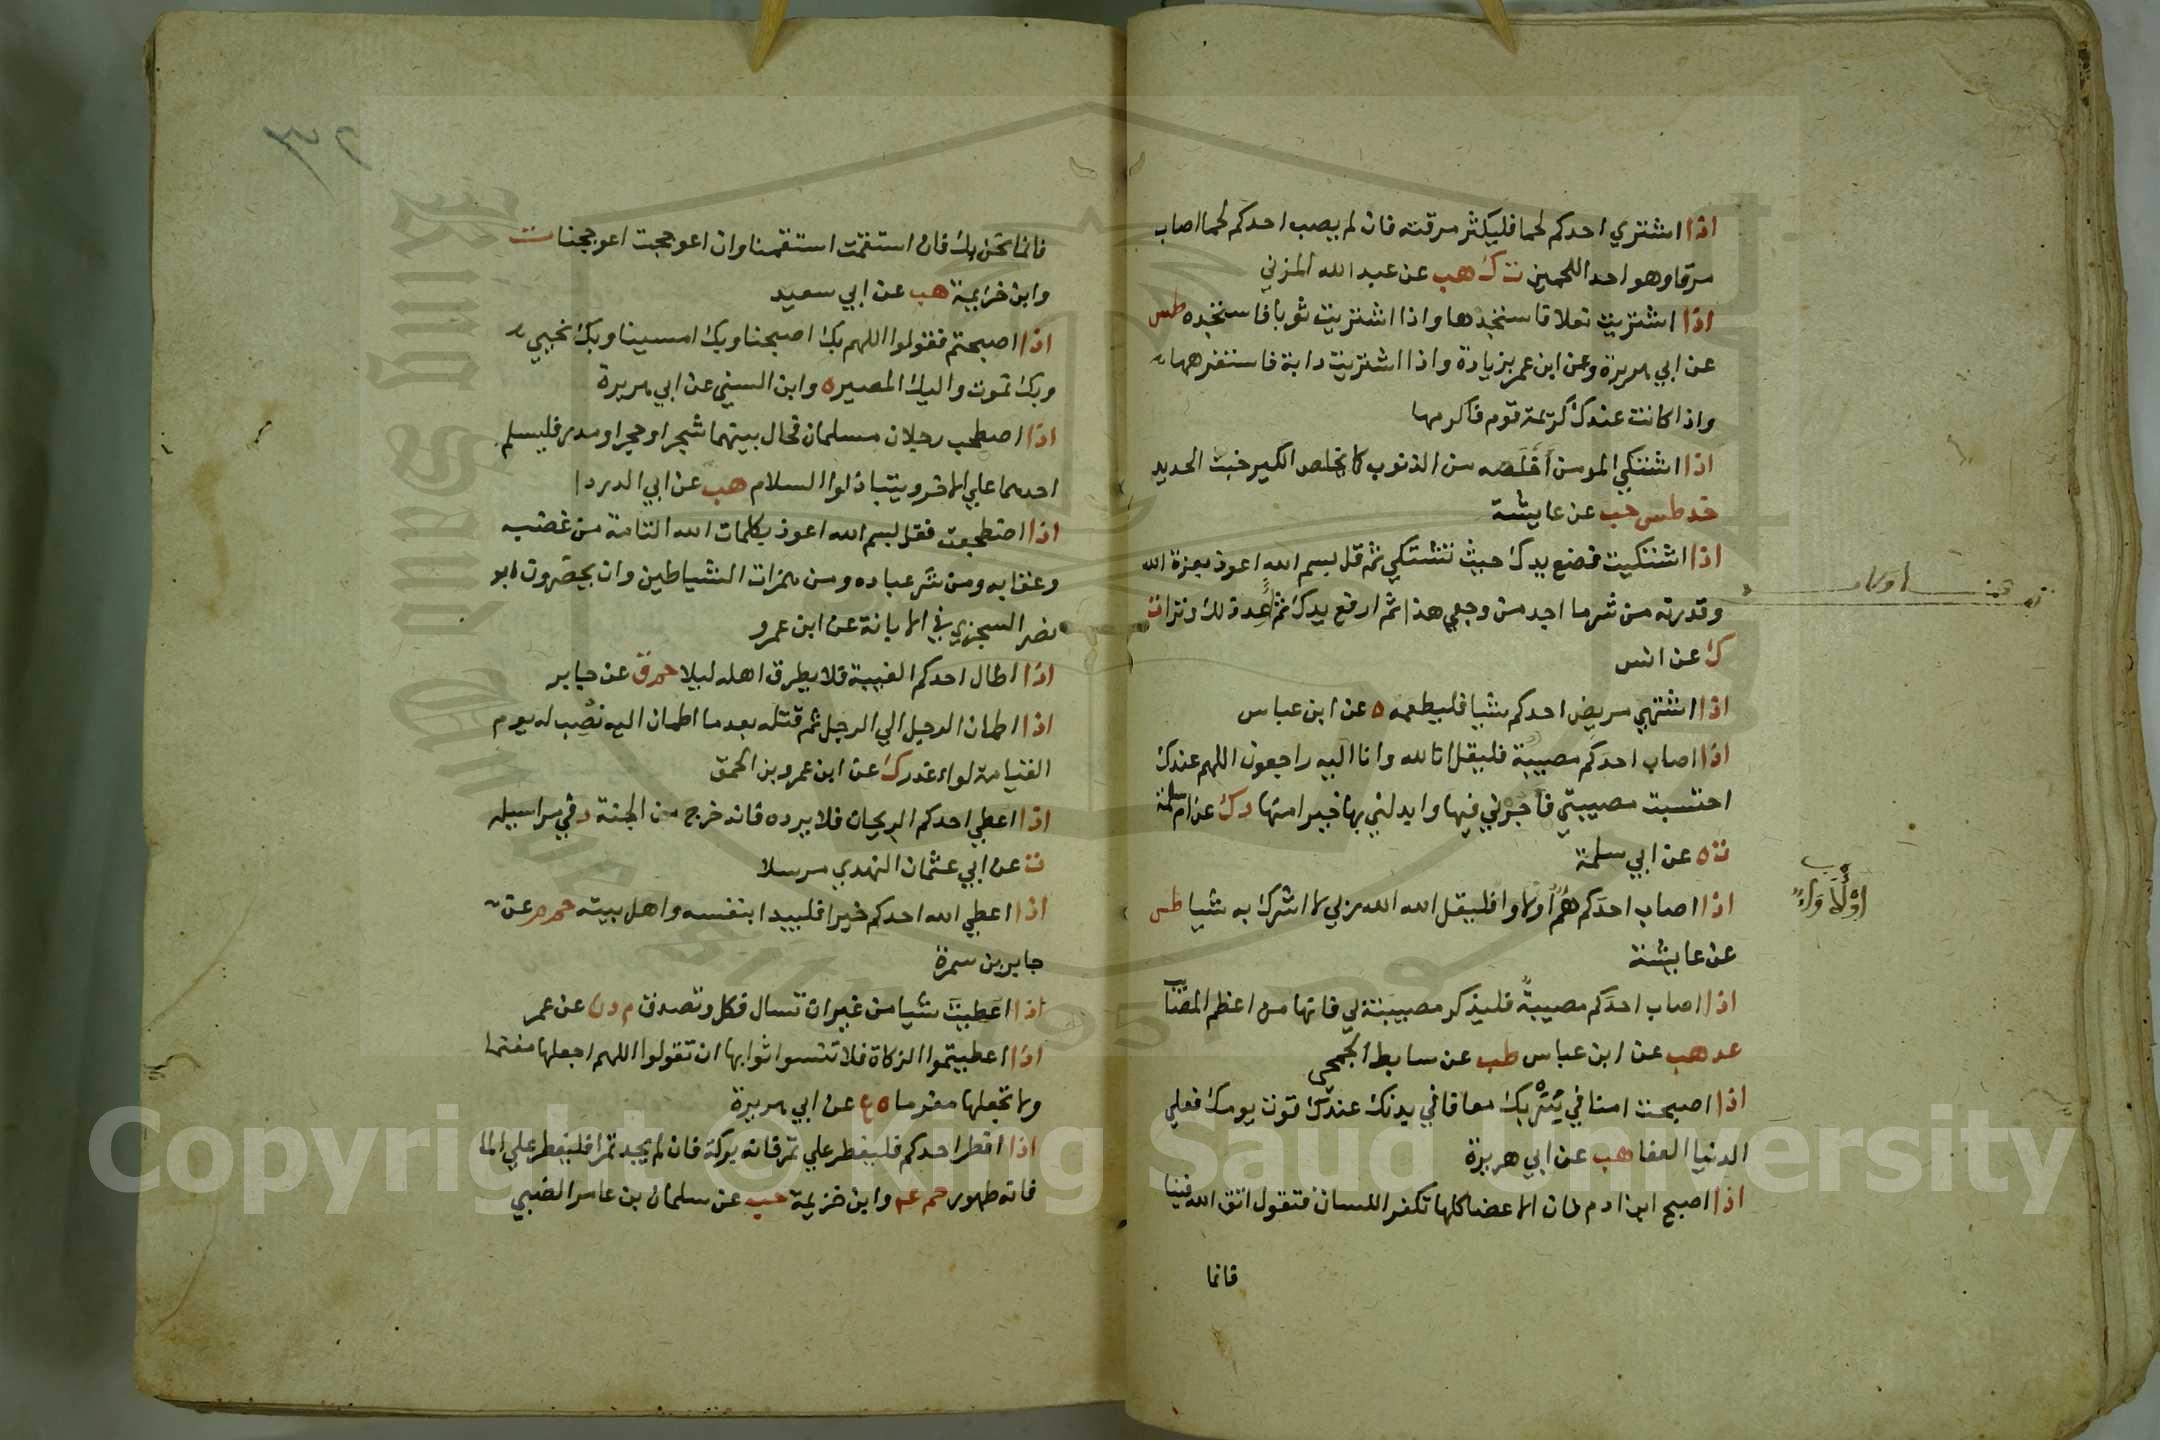 اذا اشتري احدكم لحما فليكثر مرقته فان لم يصب احدكم لحما اصاب
مرقا وهو احد اللحمين ت ك هب عن عبد الله المزني
اذا اشتريت نعلا فاستجدها واذا اشتريت ثوبا فاستجده طس
عن ابي هريرة وعن ابن عمر بزيادة واذا اشتريت دابة فاستفرهها
واذا كانت عندك كريمة قوم فاكرمها
اذا اشتكي المومن اخلصه من الذنوب كما يخلص الكير خبث الحديد
خد طس حب عن عايشة
اذا اشتكيت فضع يدك حيث تشتكي ثم قل بسم الله اعوذ بعزة الله
وقدرته من شر ما اجد من وجعي هذا ثم ارفع يدك ثم اعد ذلك وترا ت
ك عن انس
اذا اشتهي مريض احدكم شيا فليطعمه ه عن ابن عباس
اذا اصاب احدكم مصيبة فليقل انا لله وانا اليه راجعون اللهم عندك
احتسبت مصيبتي فاجرني فيها وابدلني بها خيرا منها د ك عن ام سلمة
ت ه عن ابي سلمة
اذا اصاب احدكم هم او لاوا فليقل الله الله ربي لا اشرك به شيا طس
عن عايشة
اذا اصاب احدكم مصيبة فليذكر مصيبته لي فانها من اعظم المصايب
عد هب عن ابن عباس طب عن سابط الجمحي
اذا اصبحت امنا في سربك معافا في بدنك عندك قوت يومك فعلي
الدنيا العفا هب عن ابي هريرة
اذا اصبح ابن ادم فان الاعضا كلها تكفر اللسان فتقول اتق الله فينا
فانما
فانما نحن بك فان استقمت استقمنا وان اعوججت اعوججنا ت
وابن خزيمة هب عن ابي سعيد
اذا اصبحتم فقولوا اللهم بك اصبحنا وبك امسينا وبك نحيي
وبك نموت واليك المصير ه وابن السني عن ابي هريرة
اذا اصطحب رجلان مسلمان فحال بينهما شجر او حجر او مدر فليسلم
احدهما علي الاخر ويتباذلوا السلام هب عن ابي الدردا
اذا اضطجعت فقل بسم الله اعوذ بكلمات الله التامة من غضبه
وعقابه ومن شر عباده ومن همزات الشياطين وان يحضرون ابو
نصر السجزي في الابانة عن ابن عمرو
اذا اطال احدكم الغيبة فلا يطرق اهله ليلا حم ق عن جابر
اذا اطمان الرجل الي الرجل ثم قتله بعد ما اطمان اليه نصب له يوم
القيامة لواء غدر ك عن ابن عمرو بن الحمق
اذا اعطي احدكم الريحان فلا يرده فانه خرج من الجنة د في مراسيله
ت عن ابي عثمان النهدي مرسلا
اذا اعطي الله احدكم خيرا فليبدا بنفسه واهل بيته حم م عن
جابر بن سمرة
اذا اعطيت شيا من غير ان تسال فكل وتصدق م د ن عن عمر
اذا اعطيتموا الزكاة فلا تنسوا ثوابها ان تقولوا اللهم اجعلها مغنما
ولا تجعلها مغرما ه ع عن ابي هريرة
اذا افطر احدكم فليفطر علي تمر فانه بركة فان لم يجد تمرا فليفطر علي الما
فانه طهور حم عه وابن خزيمة حب عن سلمان بن عامر الضبي
Copyright © King Saud University